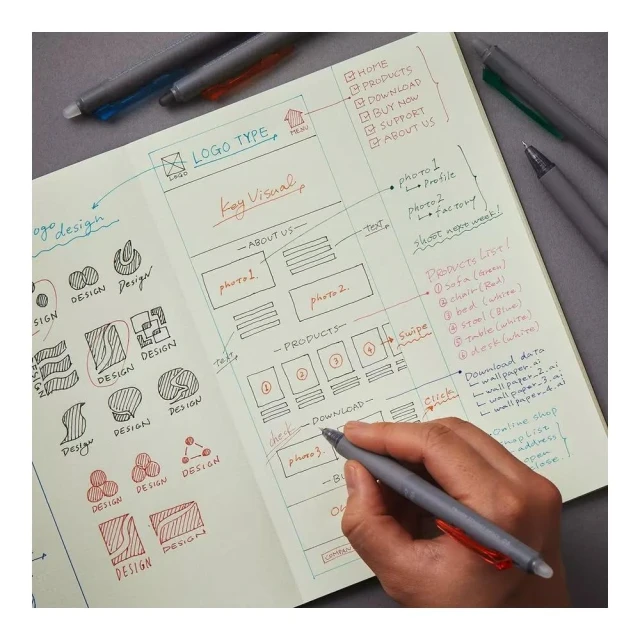 logo design
DESIGN
DESIGN
Design
DESIGN
DESIGN
DESIGN
Design
DESIGN
DESIGN
DESIGN
DESIGN
DESIGN
DESIGN
DESIGN
LOGO
LOGO TYPE
MENU
Key Visual
ABOUT US
photo1.
text
photo2.
text
PRODUCTS
① ② ③ ④
Swipe
DOWNLOAD
Click
check
photo3.
HOME
PRODUCTS
DOWNLOAD
BUY NOW
SUPPORT
ABOUT US
photo1
Profile
photo2
factory
shoot next week!
PRODUCTS LIST!
① sofa (Green)
② chair (Red)
③ bed (white)
④ stool (Blue)
⑤ table (white)
⑥ desk (white)
Download data
wallpaper.ai
wallpaper-2.ai
wallpaper-3.ai
wallpaper-4.ai
Online shop
address
open
close.